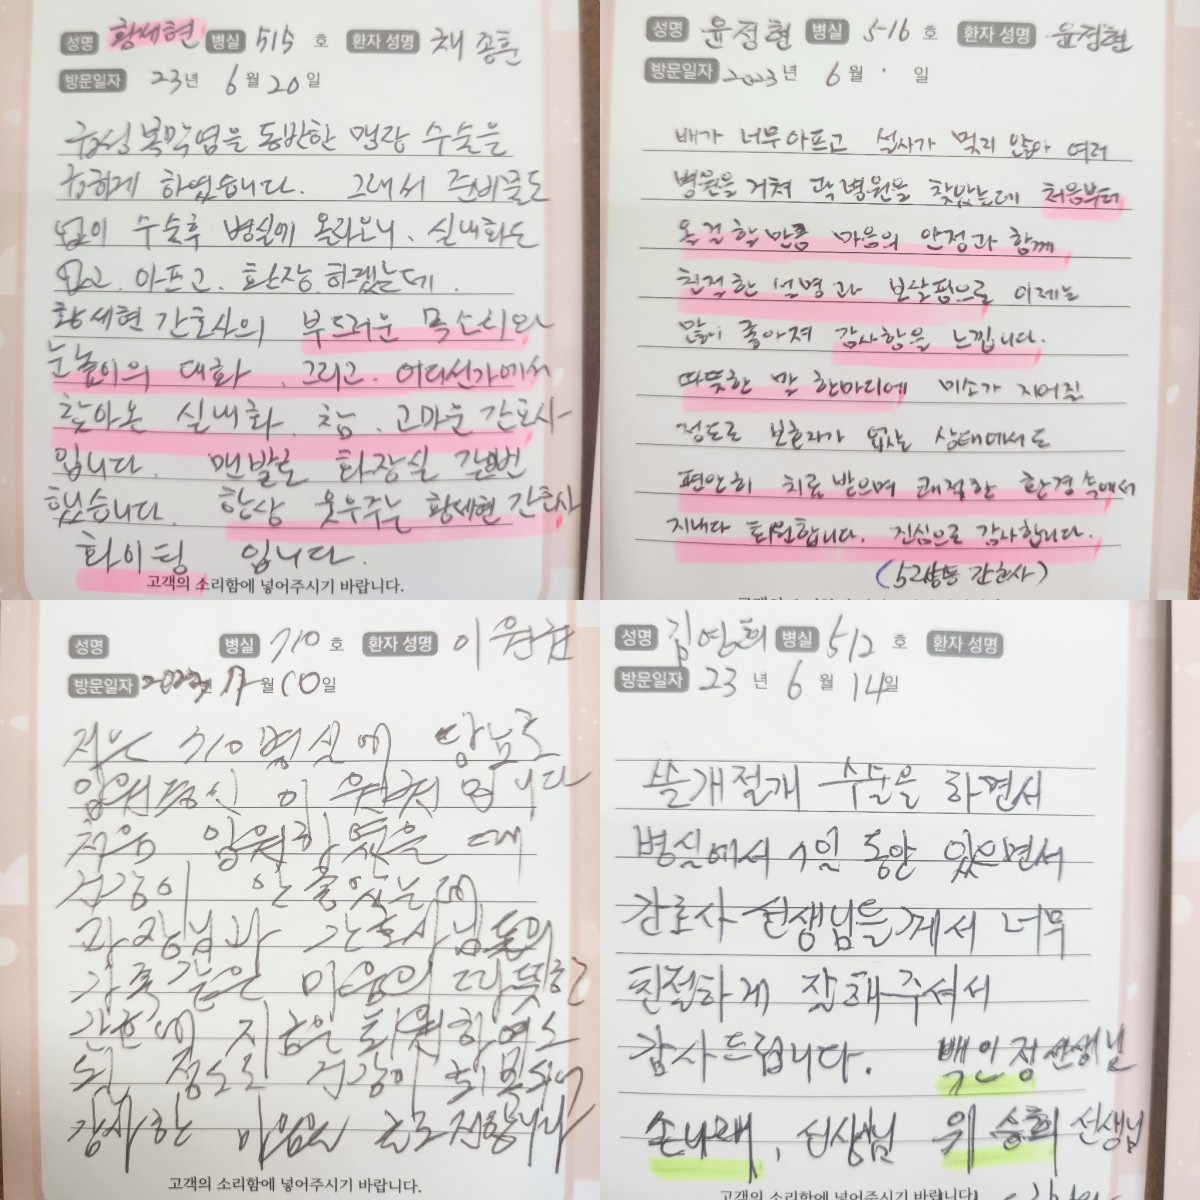 성명 황세현 병실 515 호 환자 성명 채종훈
방문일자 23년 6월 20일
급성 복막염을 동반한 맹장 수술을
급하게 하였습니다. 그래서 준비물도
없이 수술후 병실에 올라오니. 실내화도
없고. 아프고. 환장 하겠는데.
황세현 간호사의 부드러운 목소리와
눈높이의 대화. 그리고. 어디선가에서
찾아온 실내화. 참. 고마운 간호사
입니다. 맨발로 화장실 갈뻔
했습니다. 항상 웃우주는 황세현 간호사
화이팅 입니다.
고객의 소리함에 넣어주시기 바랍니다.
성명 윤정현 병실 5-16 호 환자 성명 윤정현
방문일자 2023년 6월 · 일
배가 너무아프고 설사가 멎지 않아 여러
병원을 거쳐 곽병원을 찾았는데 처음부터
옮길할만큼 마음의 안정과 함께
친절한 설명과 보살핌으로 이제는
많이 좋아져 감사함을 느낍니다.
따뜻한 말 한마디에 미소가 지어질
정도로 보호자가 없는 상태에서도
편안히 치료 받으며 쾌적한 환경 속에서
지내다 퇴원합니다. 진심으로 감사합니다.
(52병동 간호사)
성명 병실 710 호 환자 성명
방문일자 월 10일
저는 710병실에 당뇨로
입원했을 때
건강이 안 좋았는데
과장님과 간호사님들의
가족같은 마음의 따뜻한
간호에 지금은 퇴원하여도
될 정도로 건강이 회복되어
감사한 마음
고객의 소리함에 넣어주시기 바랍니다.
성명 김영희 병실 512 호 환자 성명
방문일자 23년 6월 14일
쓸개절개 수술을 하면서
병실에서 1일 동안 있으면서
간로사 선생님들께서 너무
친절하게 잘해주셔서
감사드립니다. 백인정선생님
손나래, 선생님 위승희 선생님